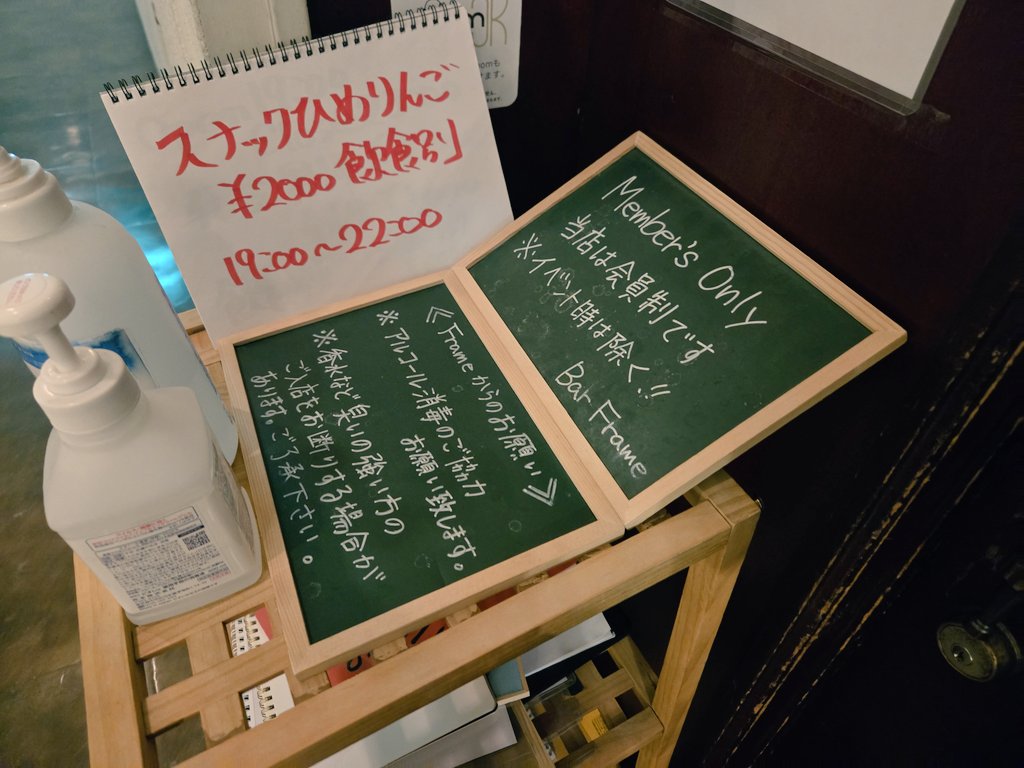 スナックひめりんご
¥2000 飲食別
19:00～22:00
Member's Only
当店は会員制です
※イベント時は除く!!
Bar Frame
《Frameからのお願い》
※アルコール消毒のご協力
お願い致します。
※香水など臭いの強い方の
ご入店をお断りする場合が
あります。ご了承下さい。